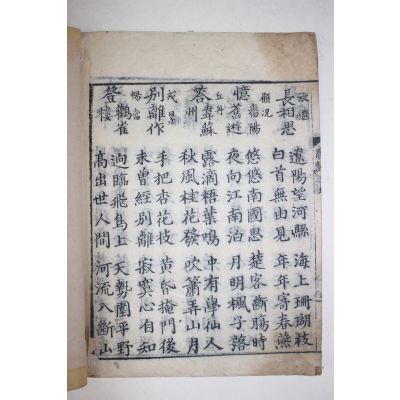 長相思
遼陽望河縣 海上珊瑚枝
白首無由見 年年寄春燕
顧況
憶鄱陽舊遊
悠悠南國思 楚客斷腸時
夜向江南泊 月明楓子落
丘丹
答韋蘇州
露滴梧葉鳴 中有學仙人
秋風桂花發 吹簫弄山月
戎昱
別離作
手把杏花枝 黃昏掩門後
未曾經別離 寂寞心自知
暢當
登鸛雀樓
迥臨飛鳥上 天勢圍平野
高出世人間 河流入斷山